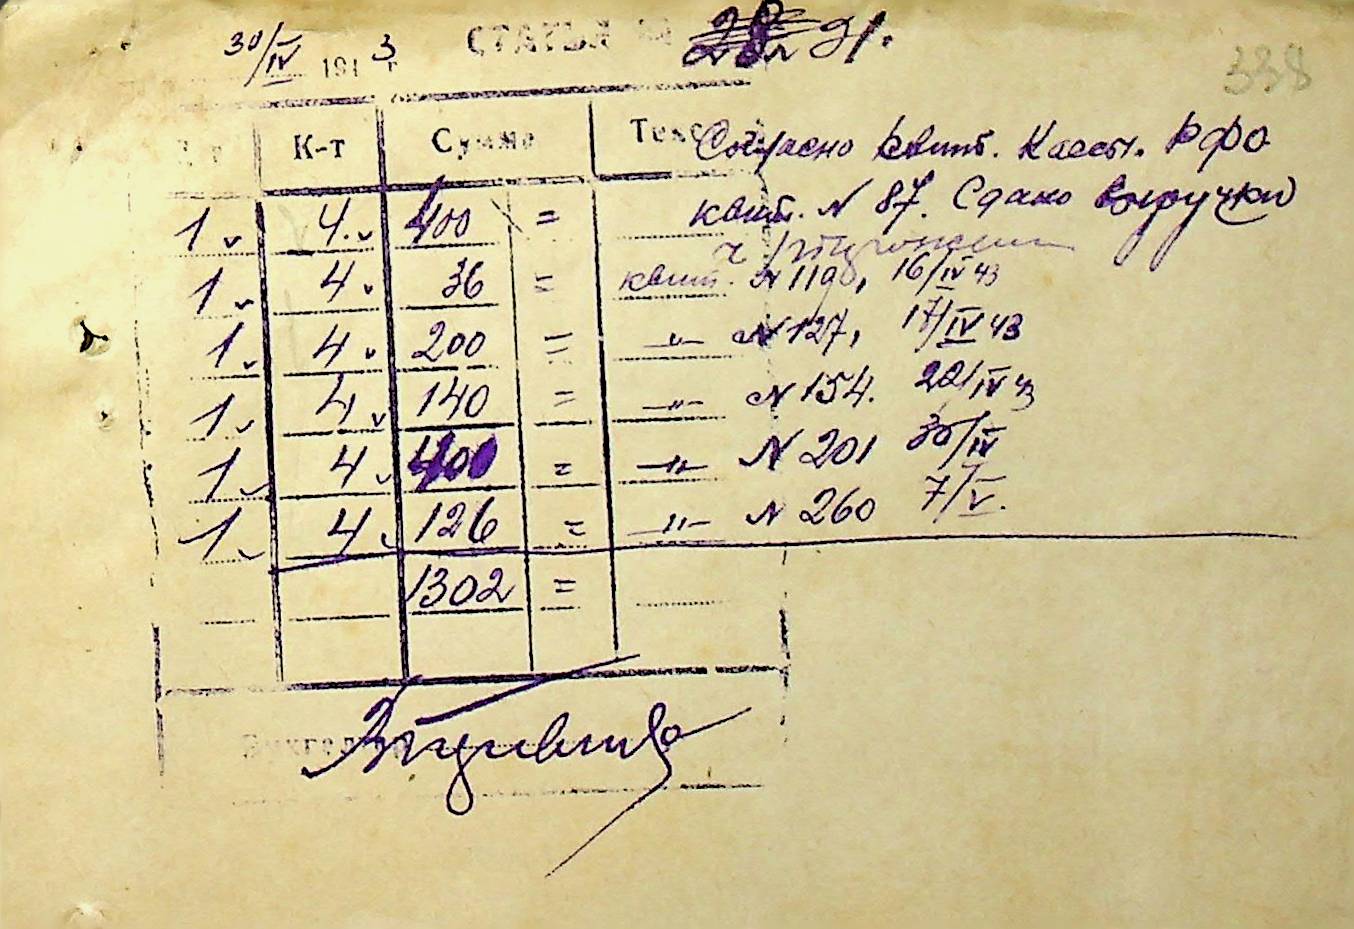 30/IV 1943 г СТАТЬЯ № 91.
338
К-т Сумма Текс
Согласно квит. Кассы. РФО
1 4. 400 = квит. N 87. Сдано выручки
1 4 36 = квит. N 1190, 16/IV 43
1 4 200 = -"- N 127, 17/IV 43
1 4 140 = -"- N 154. 22/IV 43
1 4 400 = -"- N 201 30/IV
1 4 126 = -"- N 260 7/V.
1302 =
Бухгалтер